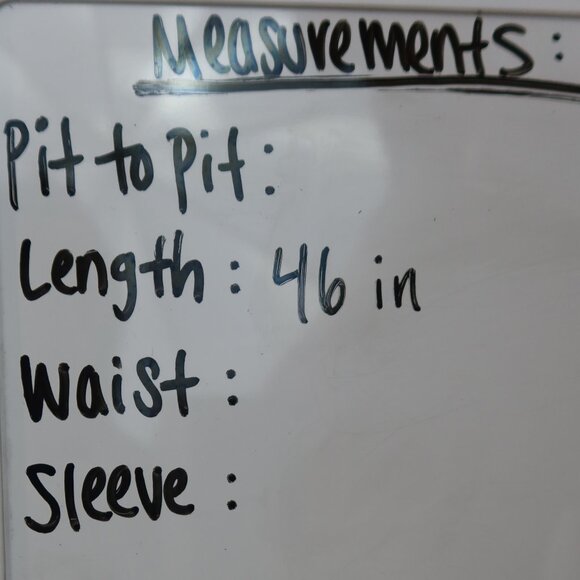 Measurements:
Pit to pit:
Length: 46 in
Waist:
Sleeve: